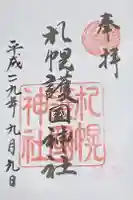 奉拝
札幌護国神社
平成二九年九月九日
札幌
神社